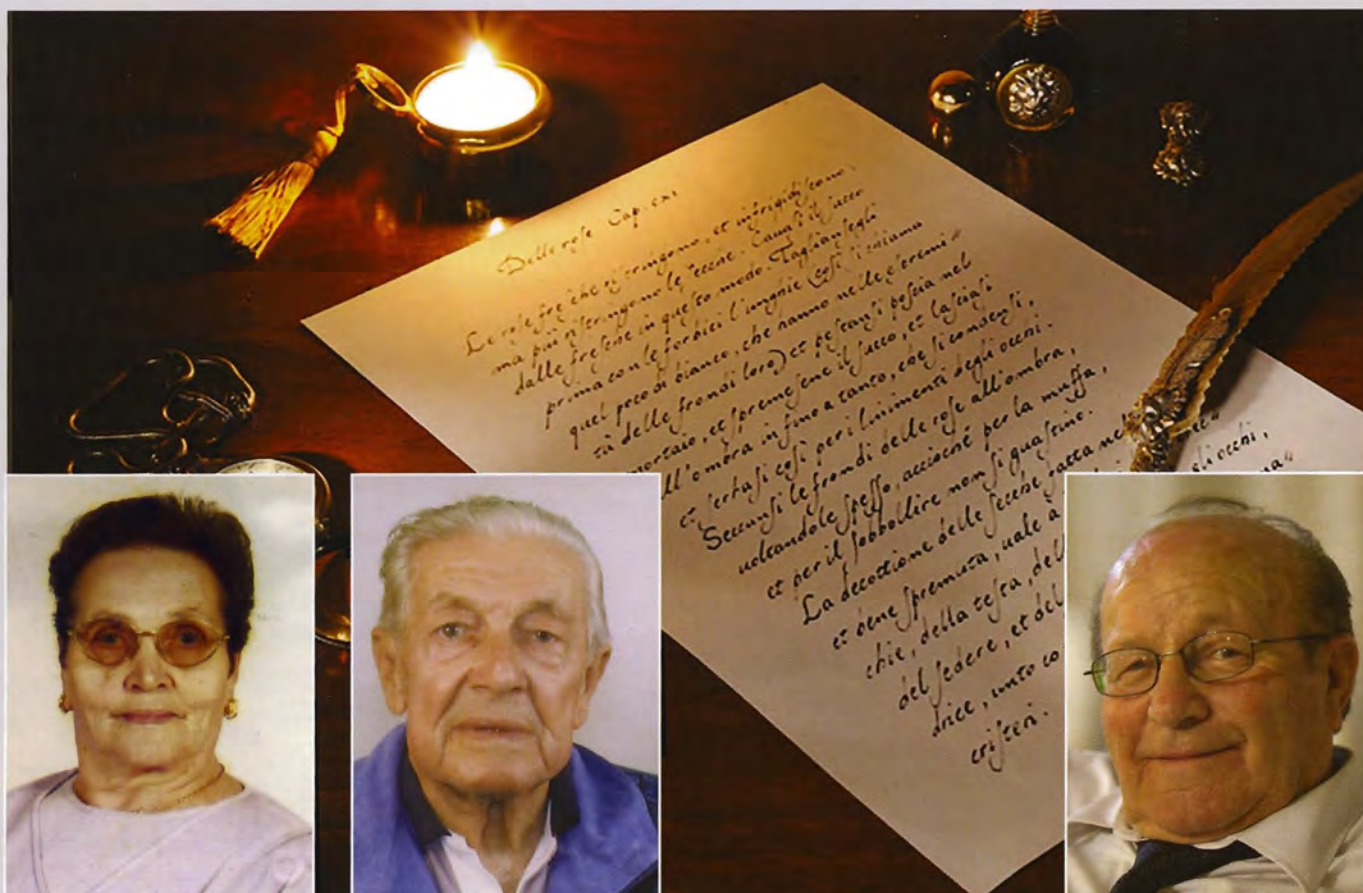 Delle rose Cap. cxi
Le rose fresche ristringono, et infrigidiscono.
mà piu ristringono le secche. Cauasi il succo
dalle fresche in questo modo. Tagliansegli
prima con le forbici l'unghie (cosi si chiama
quel poco di bianco, che nelle estremi
tà delle frondi loro) et pestansi poscia nel
mortaio, et spremesene il succo, et lasciasi
all'ombra infino a tanto, che si condensi,
et serbasi cosi per linimenti degli occhi.
Seccansi le frondi delle rose all'ombra,
uolcandole spesso, accioché per la muffa,
et per il sobbollire non si guastino.
La decottione delle secche fatta
et bene spremuta, uale à gli occhi,
chie, della testa,
del sedere, et
drice, unto
cristeri.